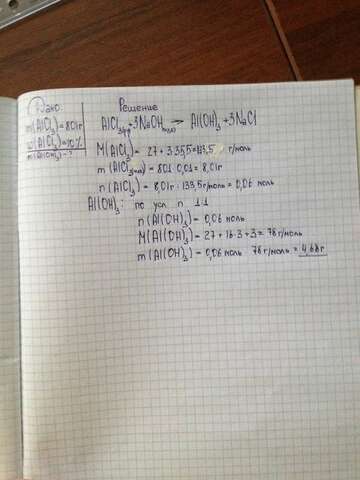 Дано
m(AlCl₃)=801г
w(AlCl₃)=10%
m(Al(OH)₃)-?
Решение
AlCl₃ + 3NaOH → Al(OH)₃ + 3NaCl
M(AlCl₃) = 27 + 3·35,5 = 133,5 г/моль
m(AlCl₃) = 801·0,01 = 8,01г
n(AlCl₃) = 8,01г : 133,5г/моль = 0,06 моль
Al(OH)₃: по усл n 1:1
n(Al(OH)₃) = 0,06 моль
M(Al(OH)₃) = 27 + 16·3 + 3 = 78 г/моль
m(Al(OH)₃) = 0,06 моль · 78 г/моль = 4,68г